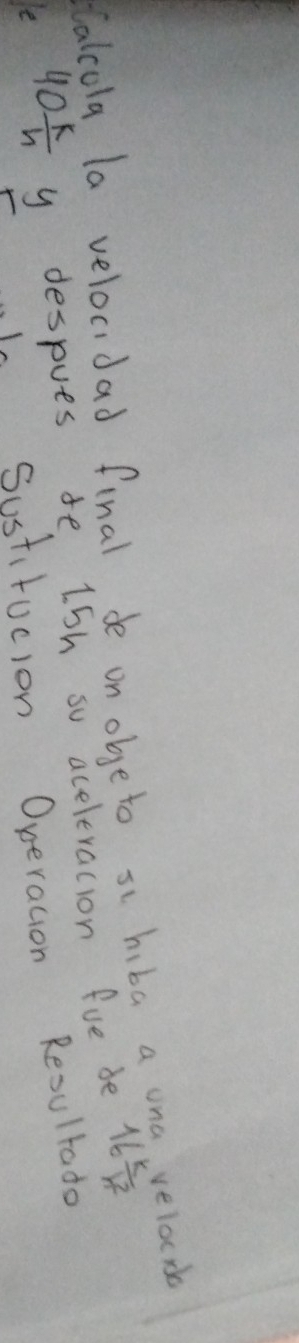 Calcula la velocidad final de un objeto si hiba a una velocida
de 40 k/h y despues de 1.5h su aceleracion fue de 16 k/h²
Sustitucion Operacion Resultado